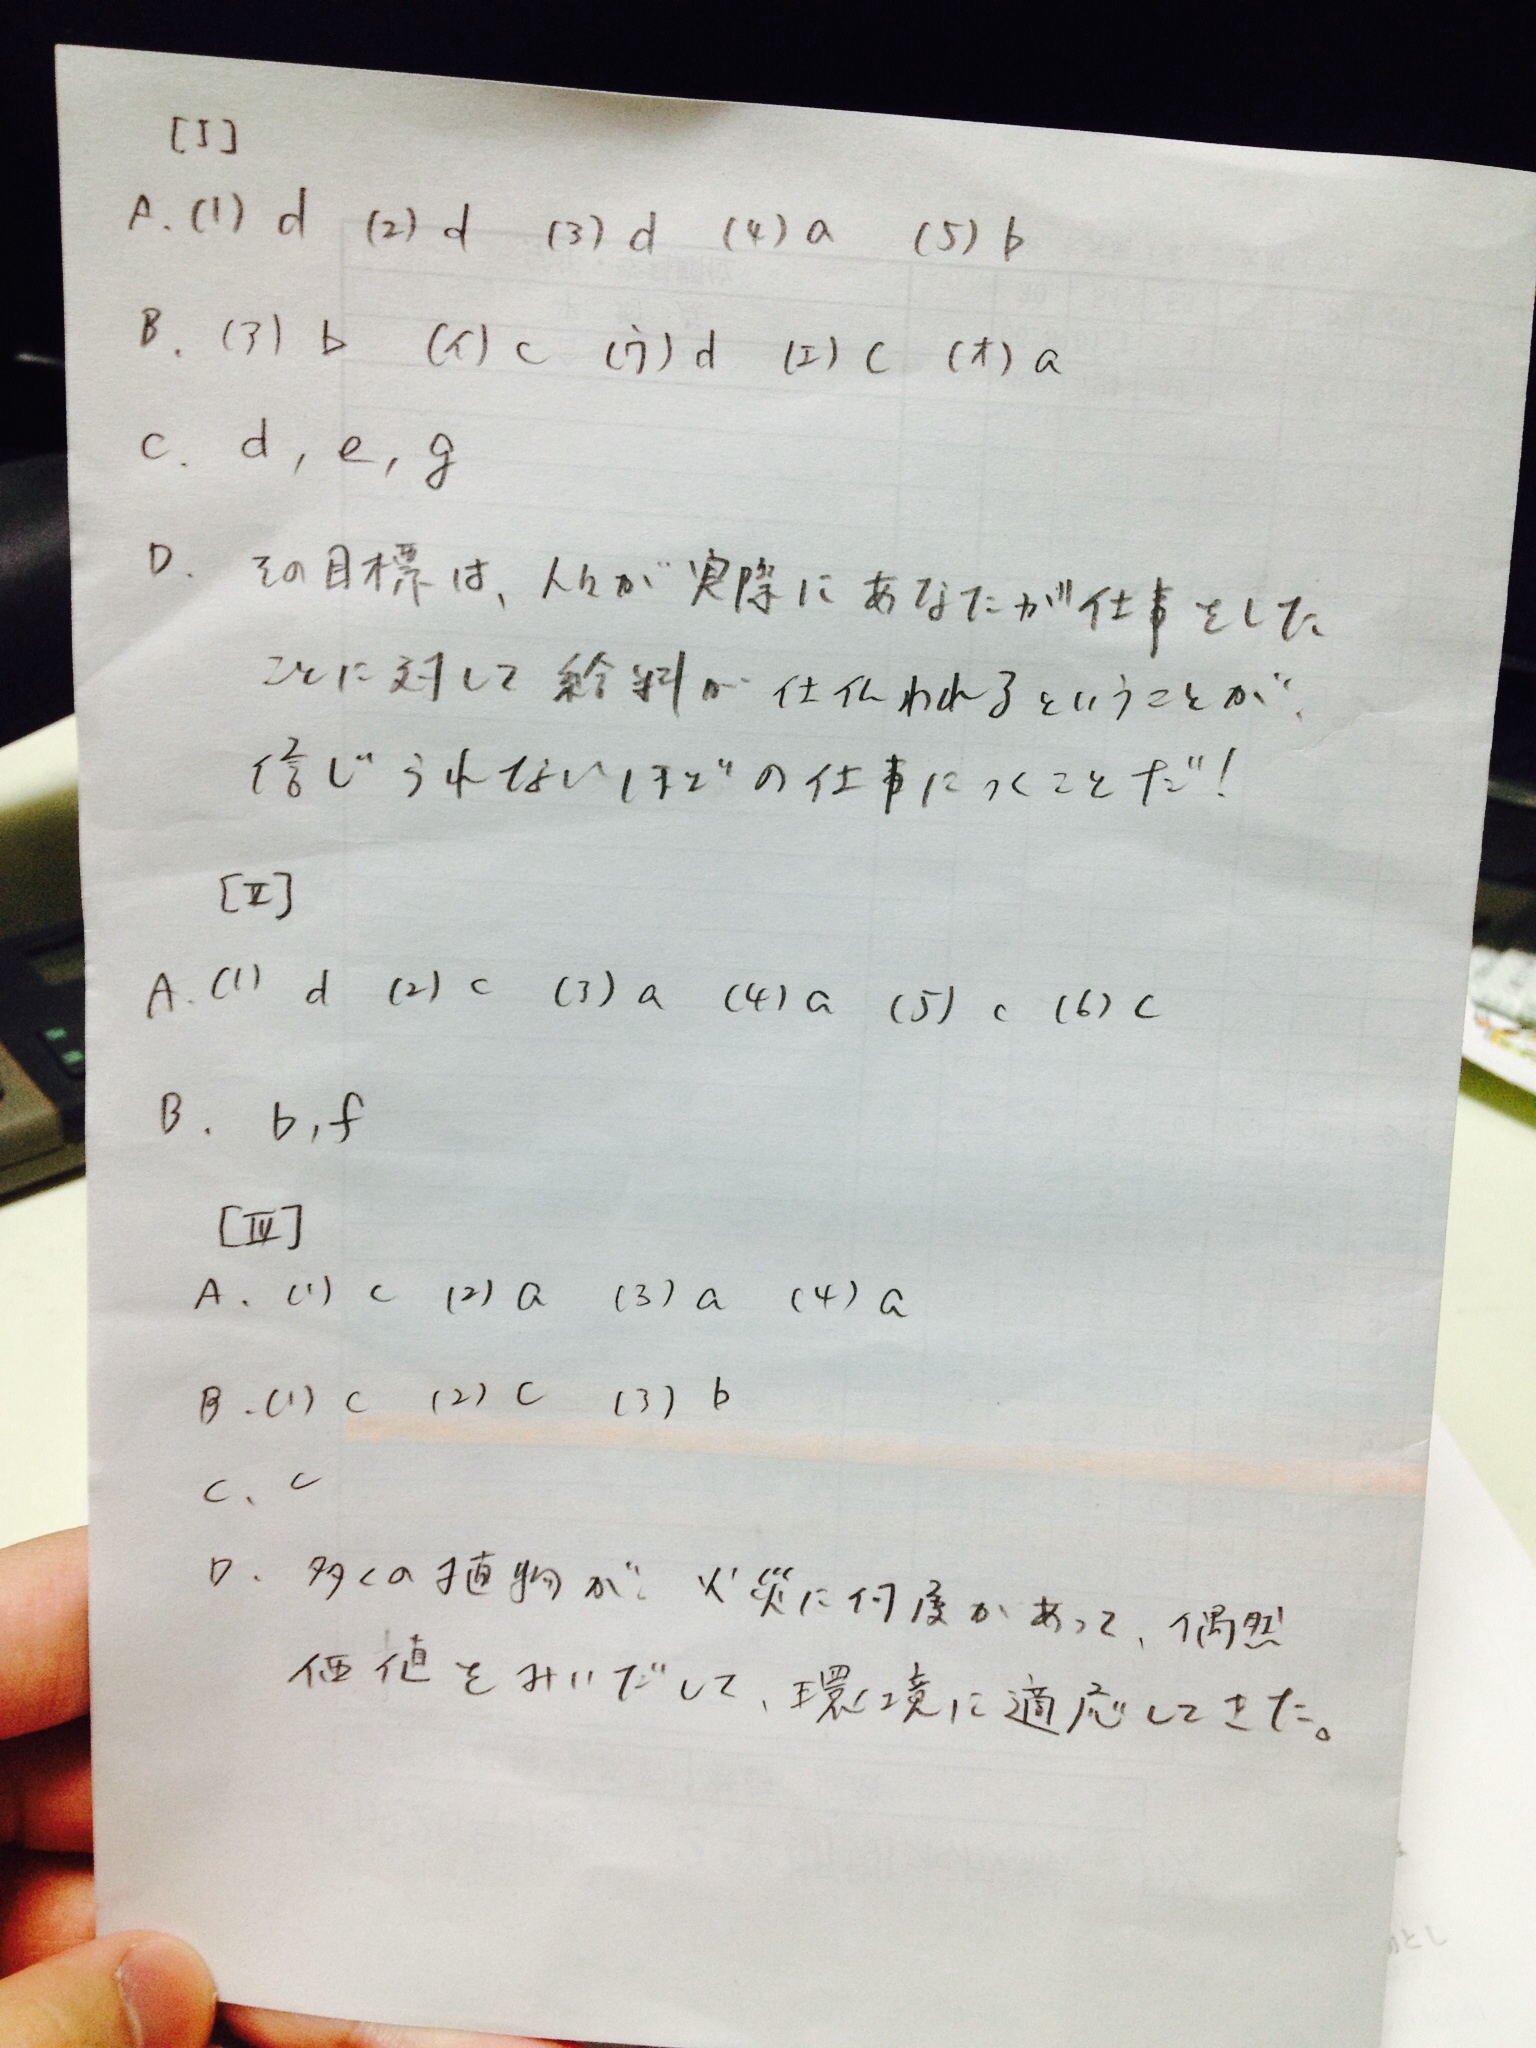 [I]
A. (1) d (2) d (3) d (4) a (5) b
B. (ア) b (イ) c (ウ) d (エ) c (オ) a
C. d, e, g
D. その目標は、人々が実際にあなたが仕事をした
ことに対して給料が仕仏われるということが、
信じうれないほどの仕事につくことだ!
[II]
A. (1) d (2) c (3) a (4) a (5) c (6) c
B. b, f
[IV]
A. (1) c (2) a (3) a (4) a
B. (1) c (2) c (3) b
C. c
D. 多くの植物が、火災に何度かあって、偶然
価値をみいだして、環境に適応してきた。